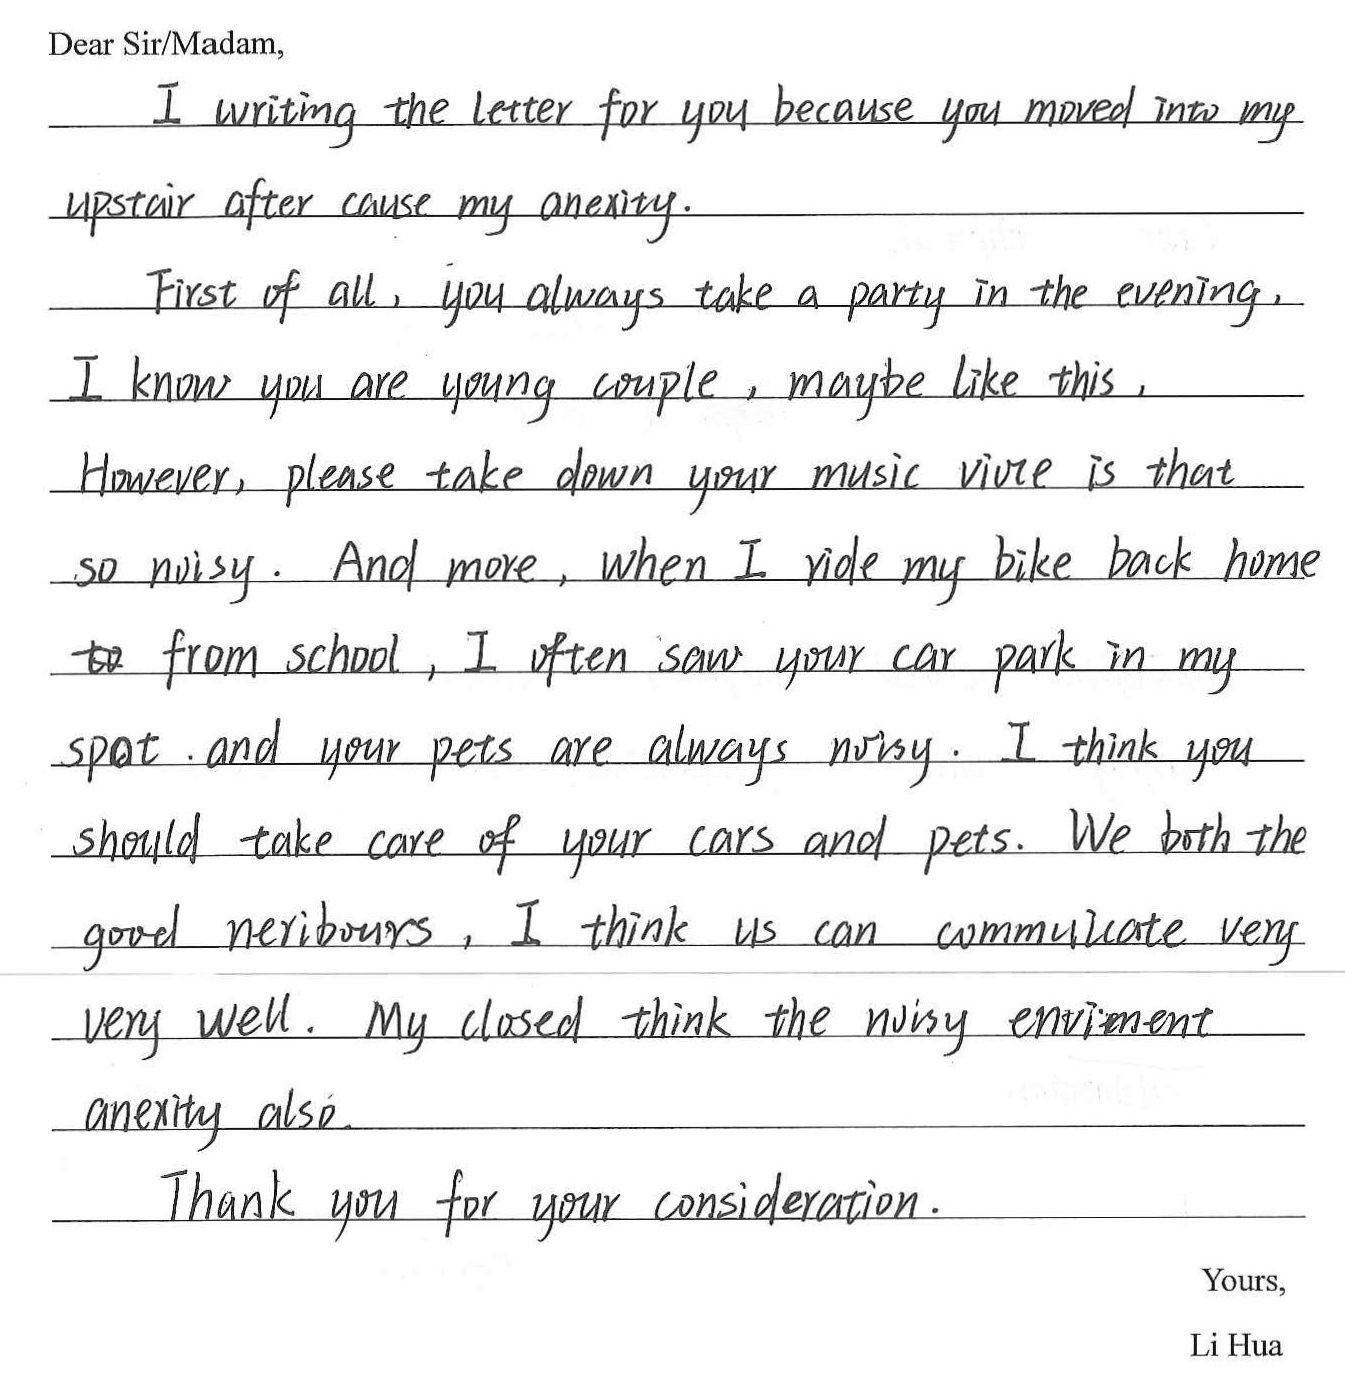 Dear Sir/Madam,
I writing the letter for you because you moved into my
upstair after cause my anexity.
First of all, you always take a party in the evening,
I know you are young couple, maybe like this,
However, please take down your music vivre is that
so noisy. And more, when I ride my bike back home
to from school, I often saw your car park in my
spot. and your pets are always noisy. I think you
should take care of your cars and pets. We both the
good neribours, I think us can commulicate very
very well. My closed think the noisy enviment
anexity also.
Thank you for your consideration.
Yours,
Li Hua